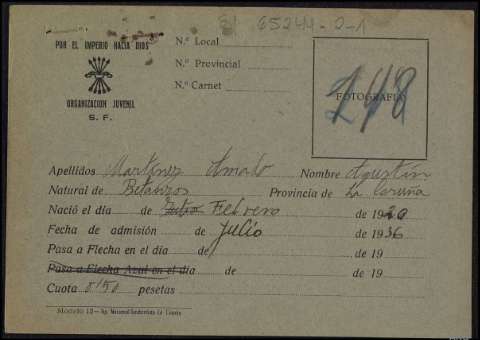 El 65244-0-1
POR EL IMPERIO HACIA DIOS
ORGANIZACION JUVENIL
S. F.
N.º Local
N.º Provincial
N.º Carnet
FOTOGRAFIA
248
Apellidos Martínez Amado Nombre Agustín
Natural de Betanzos Provincia de La Coruña
Nació el día de Julio Febrero de 1920
Fecha de admisión de Julio de 1936
Pasa a Flecha en el día de de 19
Pasa a Flecha Azul en el día de de 19
Cuota 0'50 pesetas
Modelo 12